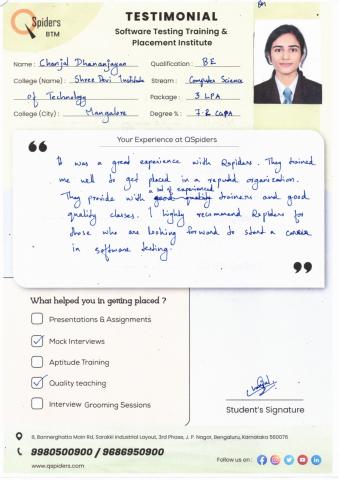 QSpiders
BTM
TESTIMONIAL
Software Testing Training &
Placement Institute
Name: Chanjal Dhananjayan
Qualification: BE
College (Name): Shree Devi Institute
of Technology
Stream: Computer Science
Package: 3 LPA
College (City): Mangalore
Degree %: 7.2 CGPA
Your Experience at QSpiders
It was a great experience with Qspiders. They trained
me well to get placed in a reputed organization.
They provide with a set of experienced trainers and good
quality classes. I highly recommend Qspiders for
those who are looking forward to start a career
in software testing.
What helped you in getting placed ?
Presentations & Assignments
Mock Interviews
Aptitude Training
Quality teaching
Interview Grooming Sessions
Student's Signature
8, Bannerghatta Main Rd, Sarakki Industrial Layout, 3rd Phase, J. P. Nagar, Bengaluru, Karnataka 560076
9980500900 / 9686950900
www.qspiders.com
Follow us on :